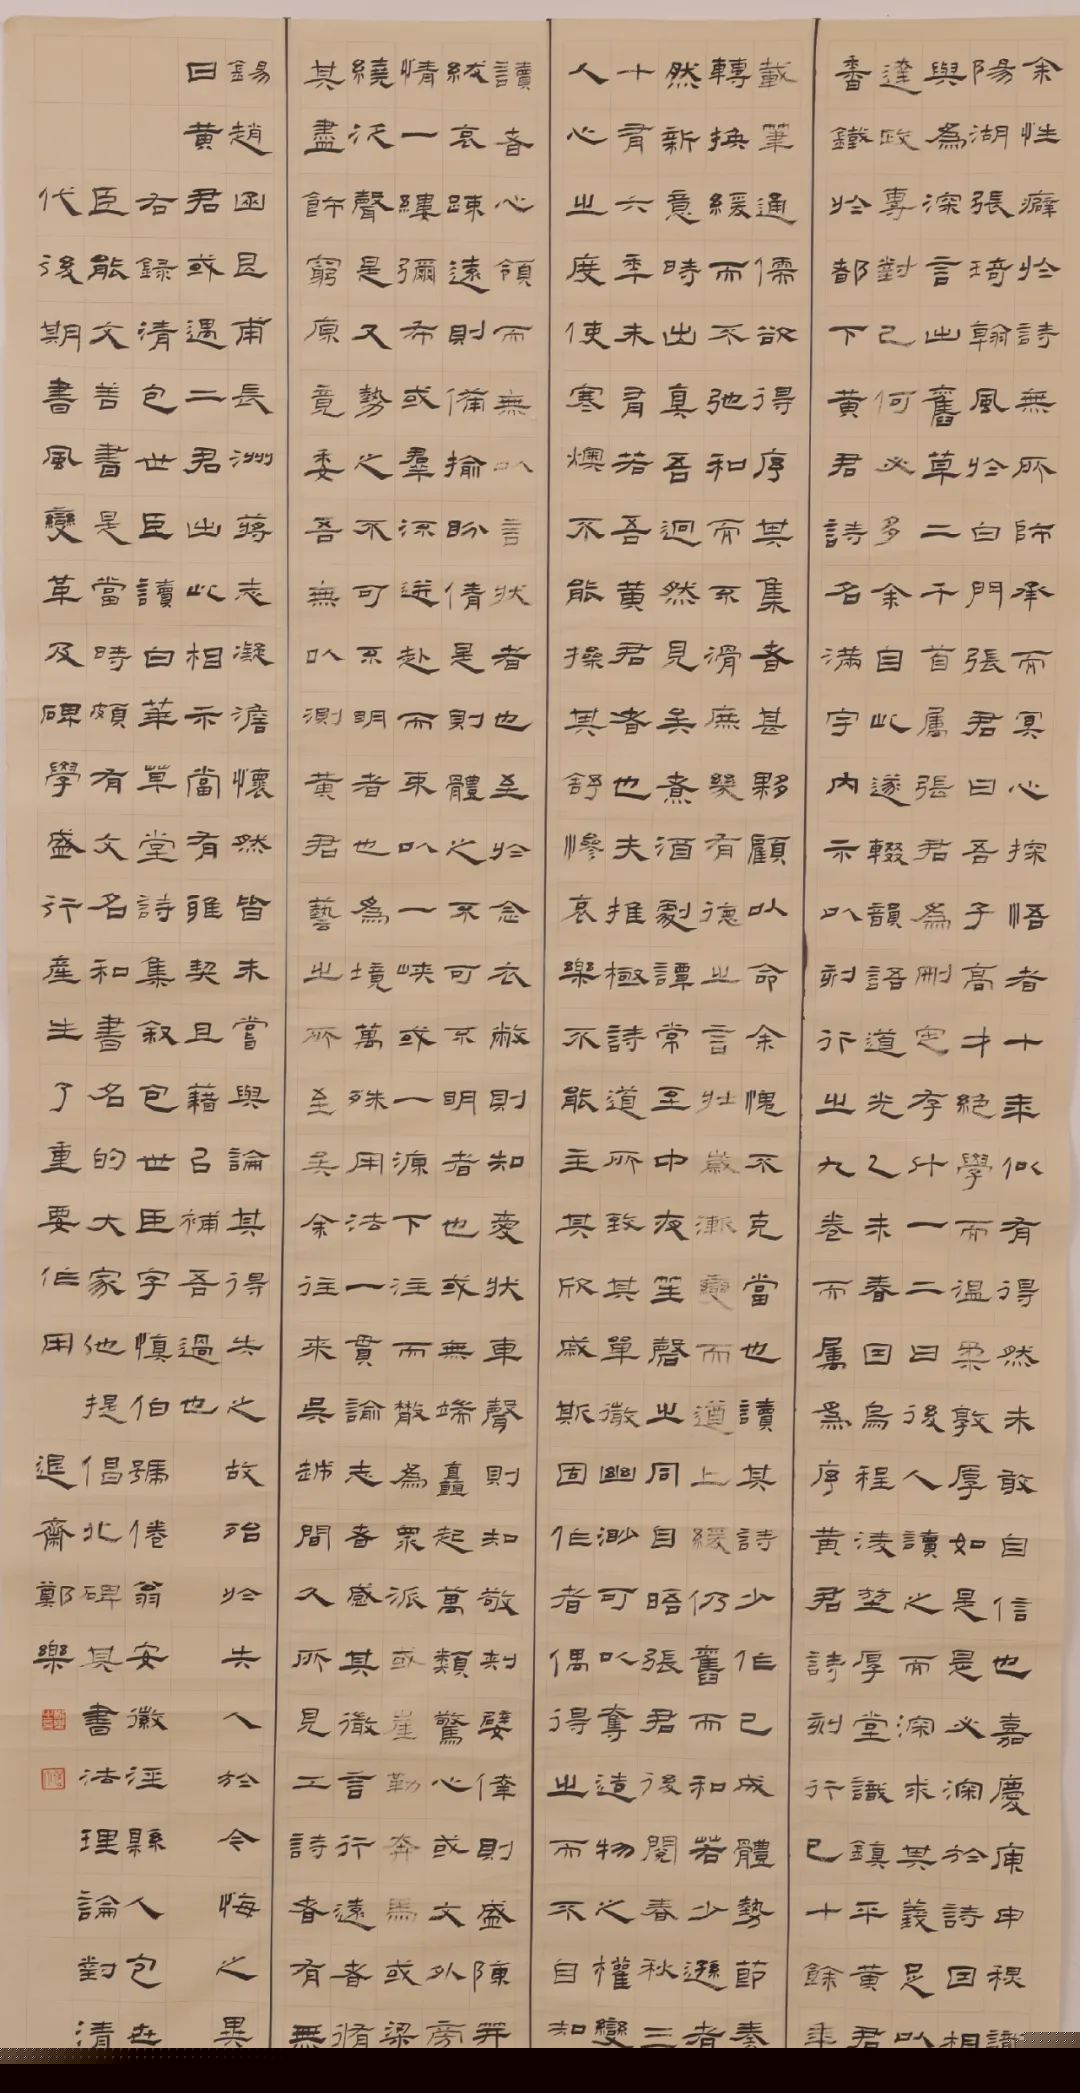 余性癖於詩無所師承而冥心探悟者十年似有得然未敢自信也嘉慶庚申識
陽湖張琦翰風於白門張君曰吾子高才絕學而溫柔敦厚如是是必深於詩因相
與為深言出舊草二千首属張君為刪定存什一二曰後人讀之而深求其義足以
達政專對已何必多余自此遂輟韻語道光乙未春因烏程淩堃厚堂識鎮平黃君
香鐵於都下黃君詩名滿宇內示以刻行之九卷而属為序黃君詩刻行已十餘年
載筆通儒欲得序其集者甚夥顧以命余愧不克當也讀其詩少作已成體勢節奏
轉換緩而不弛和而不滑庶幾有德之言壯歲漸變而遒上緩仍舊而和若少遜者
然新意時出真吾迥然見矣煮酒劇譚常至中夜笙磬之同自晤張君後閱春秋三
十有六年未有若吾黃君者也夫推極詩道所致其單微幽渺可以奪造物之權變
人心之度使寒燠不能操其舒慘哀樂不能主其欣戚斯固作者偶得之而不自知
讀者心領而無以言狀者也至於念衣敝則知愛狀車聲則知敬刻嬖倖則盛陳笄
紱哀踈遠則備揄盼倩是則體之不可不明者也或無端矗起萬類驚心或文外旁
情一縷彌希或羣流迸赴而束以一峽或一源下注而散為眾派或崖勒奔馬或梁
繞泛聲是又勢之不可不明者也為境萬殊用法一貫諭志者感其微言行遠者脩
其盡飾窮原竟委吾無以測黃君藝之所至矣余往來吳越間久所見工詩者有無
錫趙函艮甫長洲蔣志凝澹懷然皆未嘗與論其得失之故殆於失人於今悔之異
日黃君或遇二君出此相示當有雅契且藉㠯補吾過也
右錄清包世臣讀白華草堂詩集叙包世臣字慎伯號倦翁安徽涇縣人包世
臣能文善書是當時頗有文名和書名的大家他提倡北碑其書法理論對清
代後期書風變革及碑學盛行產生了重要作用 退齋鄭樂